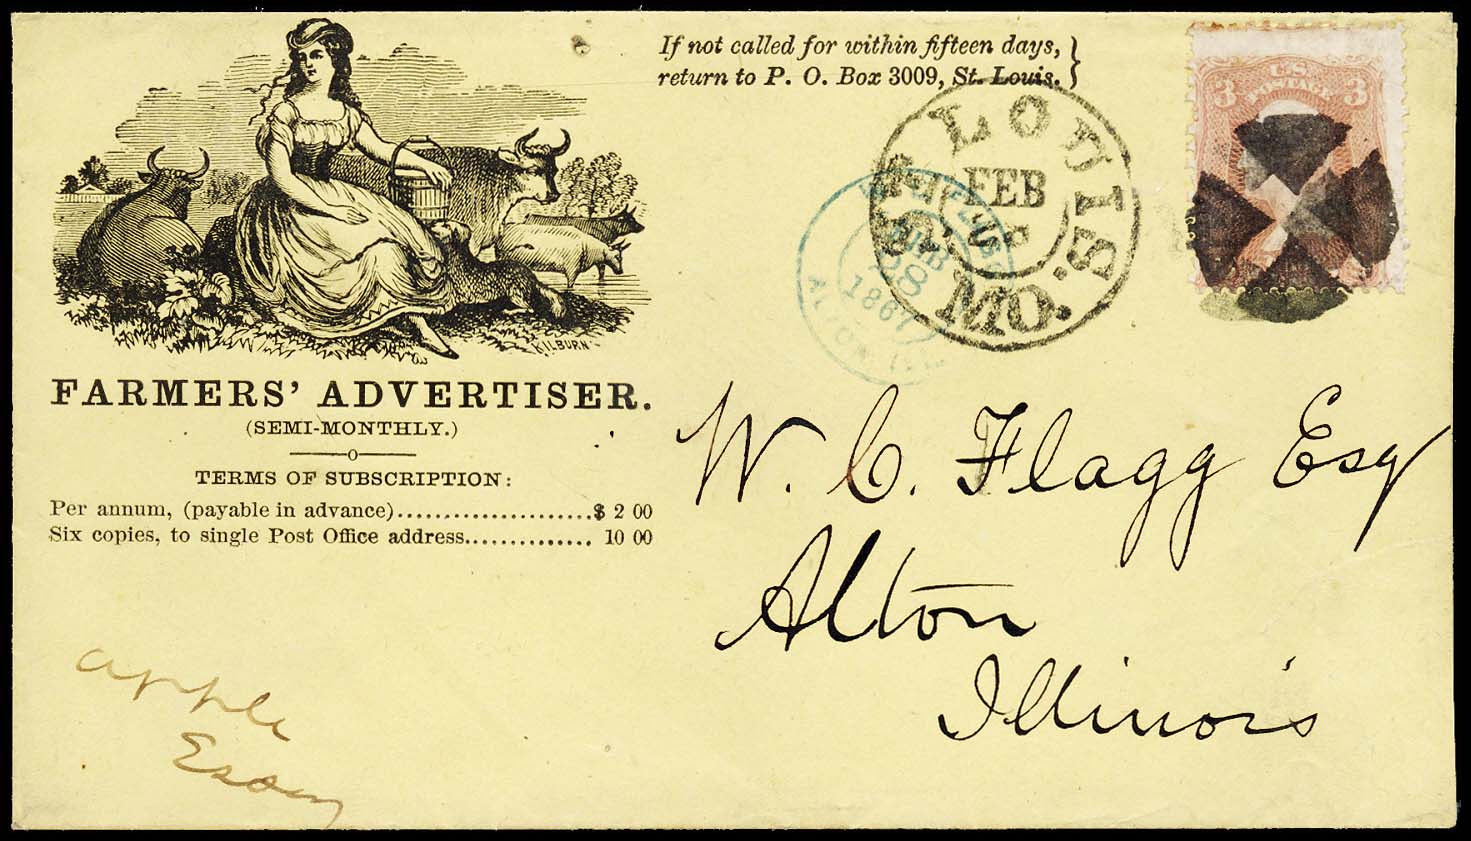 If not called for within fifteen days,
return to P. O. Box 3009, St. Louis.
ST. LOUIS
FEB
MO.
FEB
28
1867
ALTON ILL
U.S.
POSTAGE
3 3
KILBURN
FARMERS' ADVERTISER.
(SEMI-MONTHLY.)
TERMS OF SUBSCRIPTION:
Per annum, (payable in advance)......................$ 2 00
Six copies, to single Post Office address.............. 10 00
W. C. Flagg Esq
Alton
Illinois
apple
Essay